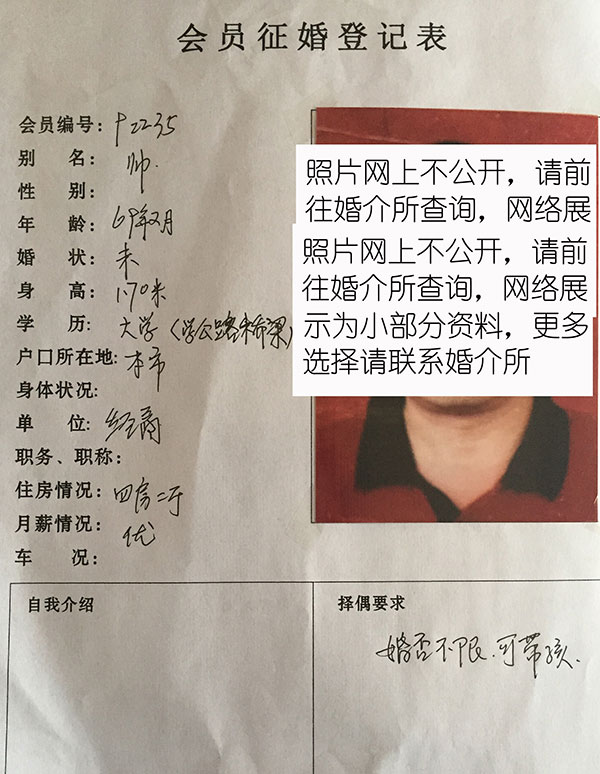 会员征婚登记表
会员编号：P2235
别 名：帅.
性 别：
年 龄：69年2月
婚 状：未
身 高：1.70米
学 历：大学（学公路桥梁）
户口所在地：本市
身体状况：
单 位：经商
职务、职称：
住房情况：四房二厅
月薪情况：优
车 况：
照片网上不公开，请前
往婚介所查询，网络展
照片网上不公开，请前
往婚介所查询，网络展
示为小部分资料，更多
选择请联系婚介所
自我介绍
择偶要求
婚否不限.可带孩.